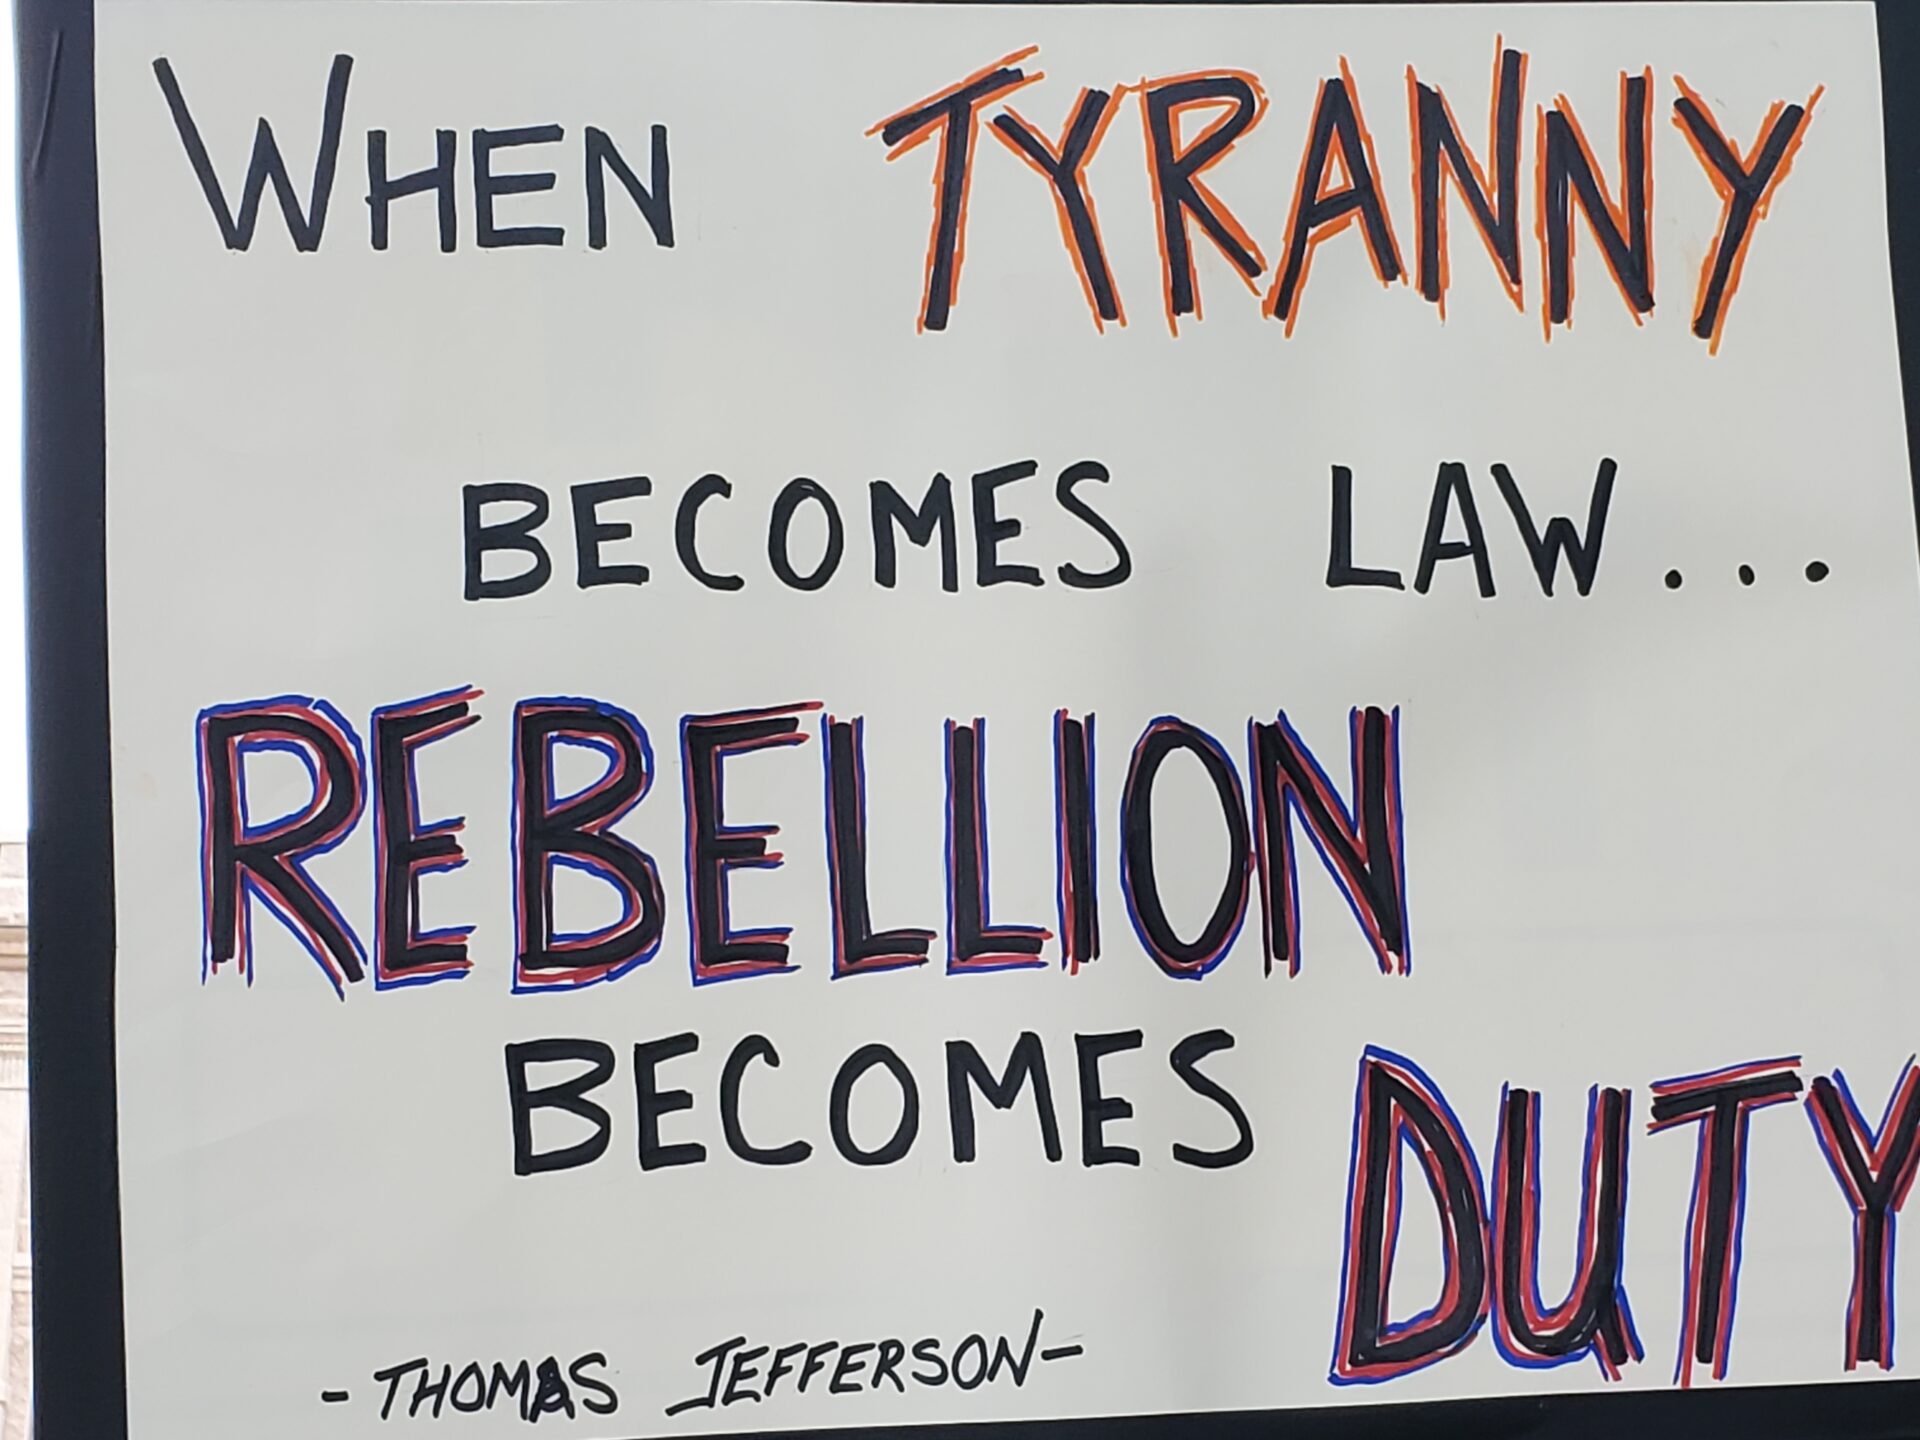 WHEN TYRANNY
BECOMES LAW...
REBELLION
BECOMES DUTY
-THOMAS JEFFERSON-